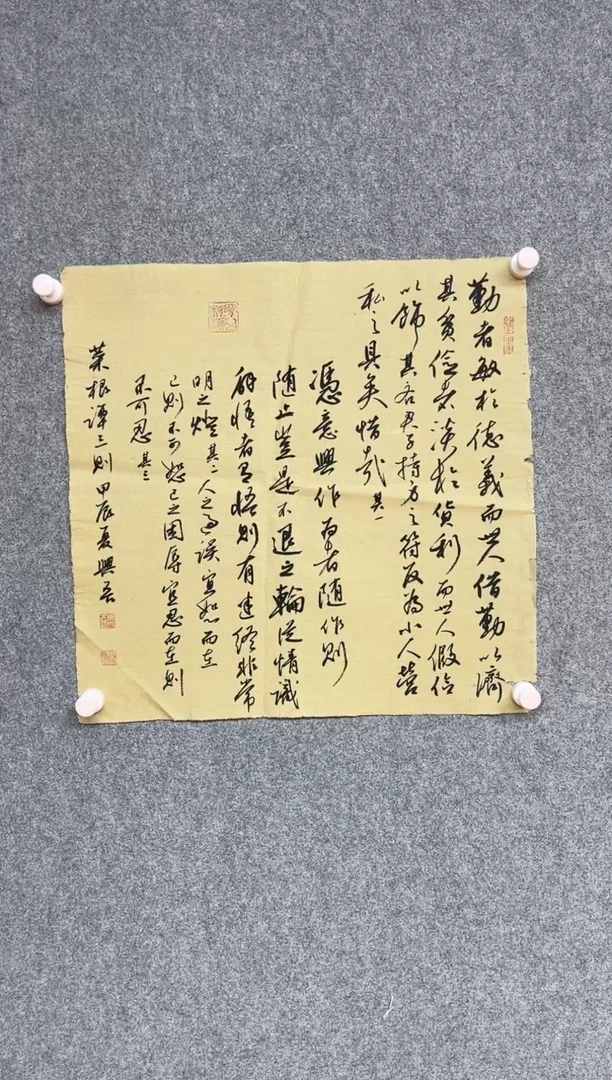 勤者敏於德義而世人借勤以濟
其貧儉者淡於貨利而世人假儉
以飾其吝君子持身之符反為小人營
私之具矣惜哉其一
憑意興作為者隨作則
隨止豈是不退之輪從情識
解悟者有悟則有迷終非常
明之燈其二人之過誤宜恕而在
己則不可恕己之困辱宜忍而在則
不可忍其三
菜根譚三則甲辰夏興吾